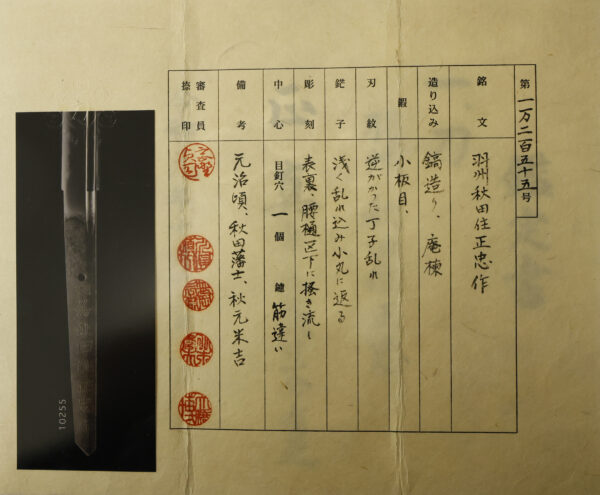 第一万二百五十五号
銘文 羽州秋田住正忠作
造り込み 鎬造り、庵棟
鍛 小板目、
刃紋 逆がかった丁子乱れ
鋩子 浅く乱れ込み小丸に返る
彫刻 表裏、腰樋区下に掻き流し
中心 目釘穴 一個 鑢 筋違い
備考 元治頃、秋田藩士、秋元米吉
審査員捺印
10255